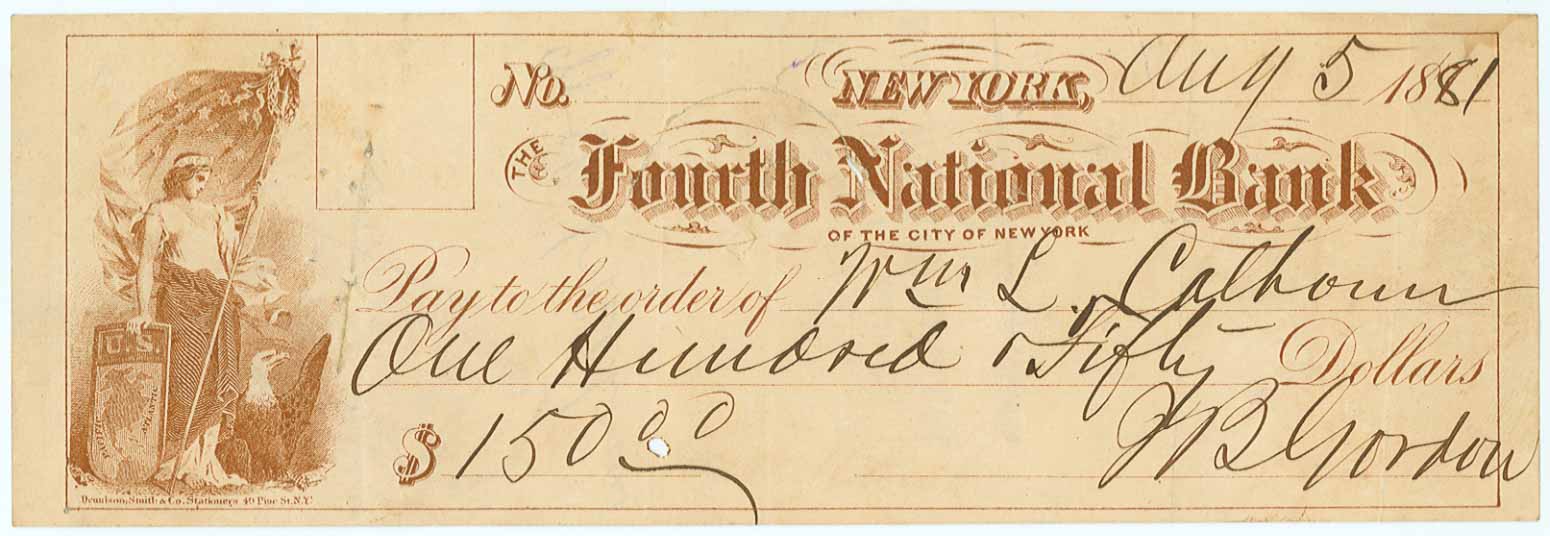 No. NEW YORK, Aug 5 1881
THE Fourth National Bank
OF THE CITY OF NEW YORK
Pay to the order of Wm L. Calhoun
One Hundred & Fifty Dollars
$ 150 00
J B Gordon
U.S.
PACIFIC ATLANTIC
Dennison, Smith & Co. Stationers 40 Pine St. N.Y.